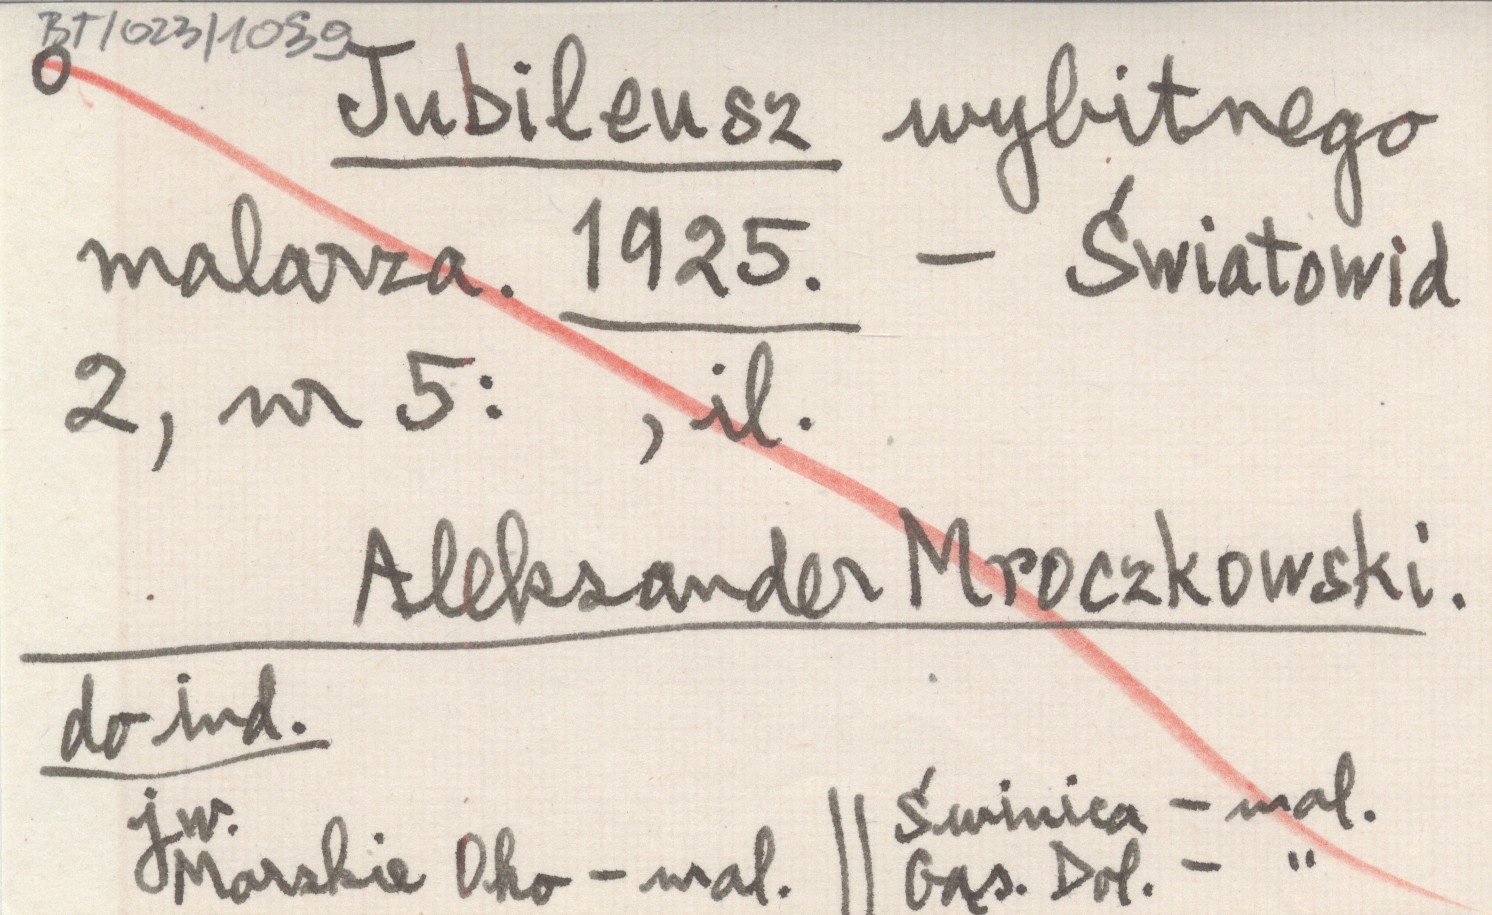 BT/023/1039
O
Jubileusz wybitnego
malarza. 1925. – Światowid
2, nr 5: , il.
Aleksander Mroczkowski.
do ind.
jw.
Morskie Oko – mal. || Świnica – mal.
Gąs. Dol. – "